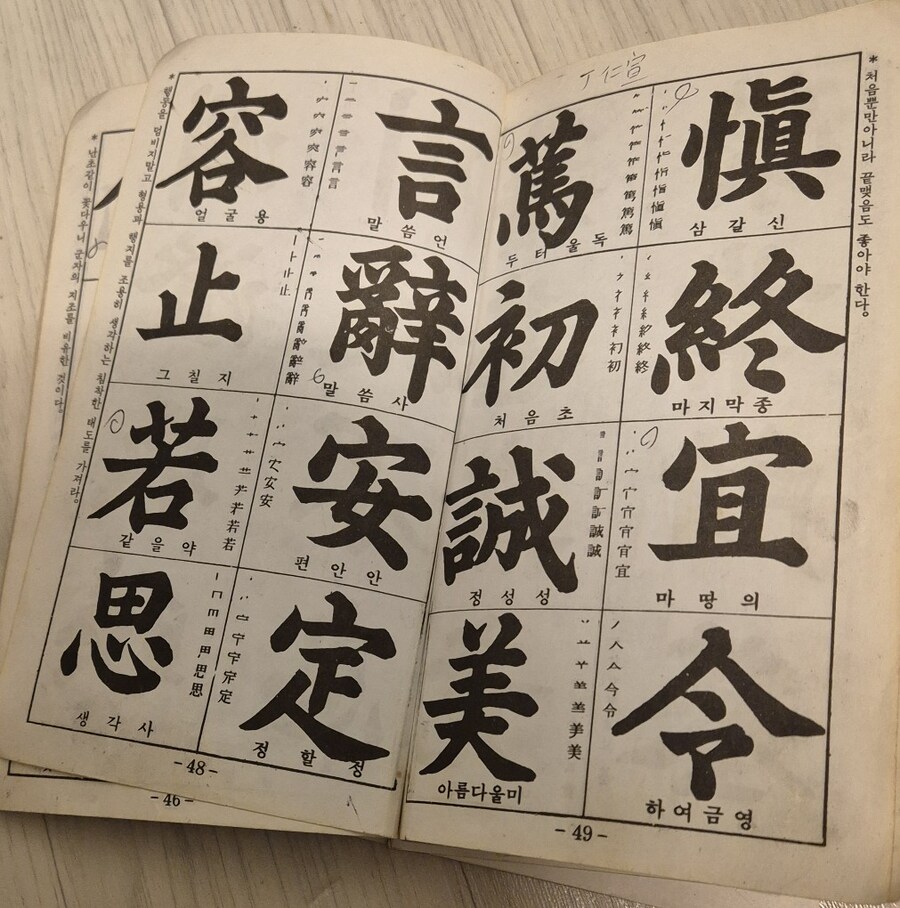 * 난초같이 꽃다우니 군자의 지조를 비유한 것이다.
- 46 -
* 행동을 덤비지말고 형용과 행지를 조용히 생각하는 침착한 태도를 가져라.
容
얼굴용
止
그칠지
若
같을약
思
생각사
言
말씀언
辭
말씀사
安
편안안
定
정할정
- 48 -
篤
두터울독
初
처음초
誠
정성성
美
아름다울미
愼
삼갈신
終
마지막종
宜
마땅의
令
하여금영
* 처음뿐만아니라 끝맺음도 좋아야 한다.
- 49 -